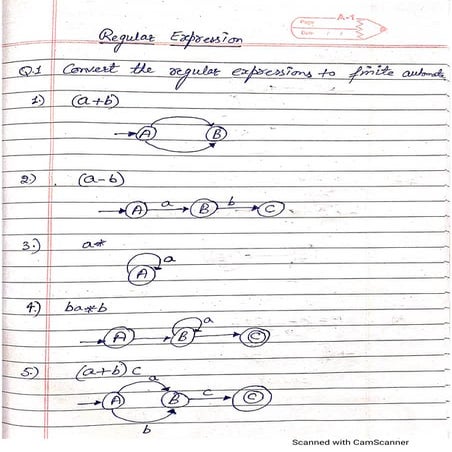 A-1
Page
Date / /
Regular Expression
Q.1 Convert the regular expressions to finite automata
1.) (a+b)
A B
2) (a-b)
A a B b C
3.) a*
a
A
4.) ba*b
a
A B C
5.) (a+b) c
a
A B c C
b
Scanned with CamScanner